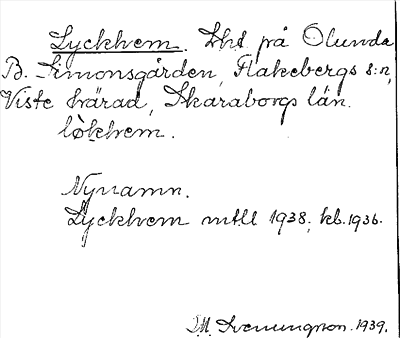 Lyckhem. Lht på Olunda
B. Simonsgården, Flakebergs s:n,
Viste härad, Skaraborgs län.
lòkhem.
Nynamn.
Lyckhem mtll 1938, kb. 1936.
M. Svenungson. 1939.